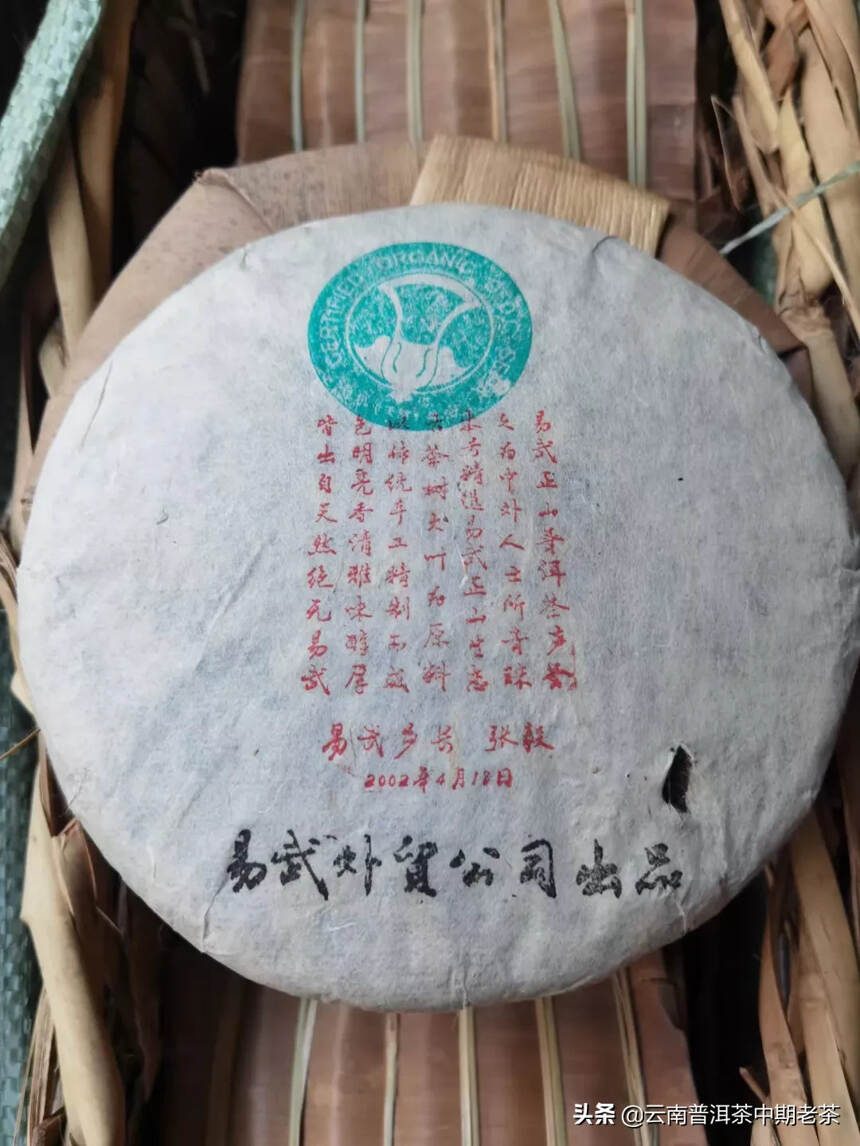 CERTIFIED ORGANIC
易武正山普洱茶声誉
久为中外人士所青睐
本号精选易武正山生态
古茶树大叶为原料
以传统手工精制而成
色明亮香清雅味醇厚
皆出自天然绝无易武
易武乡长 张毅
2002年4月18日
易武外贸公司出品
头条 @云南普洱茶中期老茶